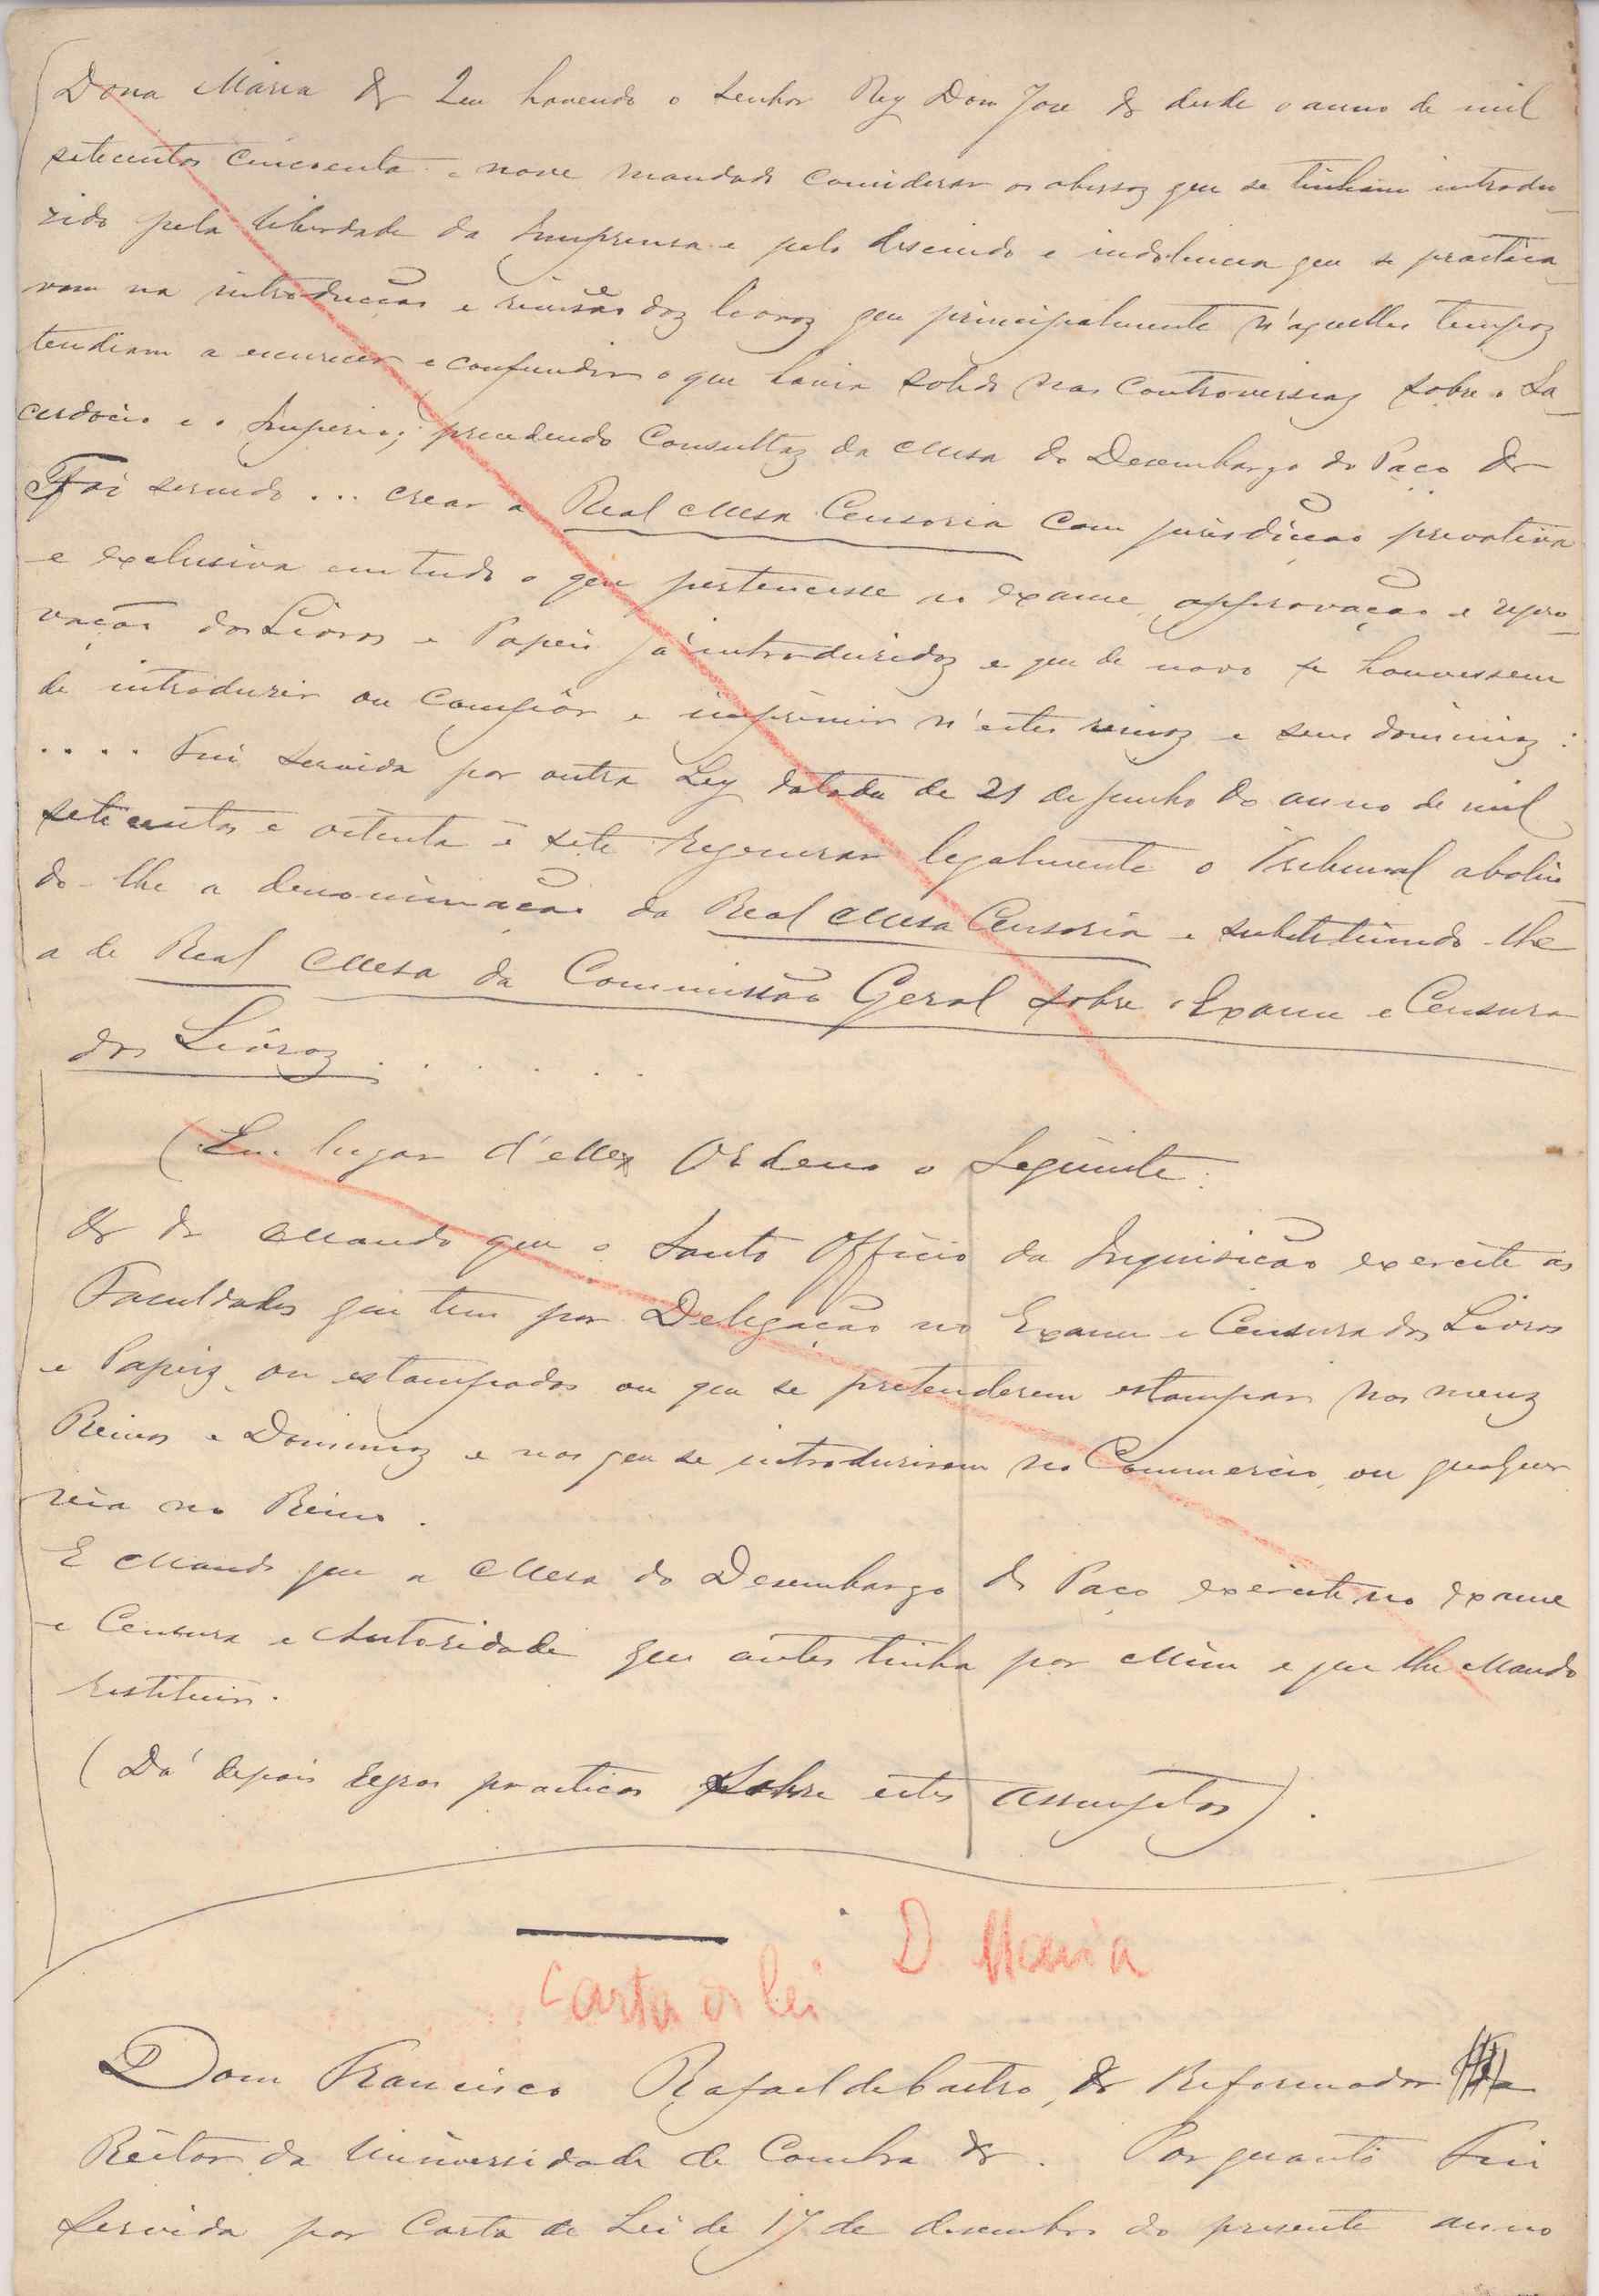 Dona Maria & Que havendo o Senhor Rey Dom Jose & desde o anno de mil
setecentos cincoenta e nove mandado considerar os abusoz que se tinham introdu-
zido pela liberdade da Imprensa e pelo descuido e indolencia que se practica-
vam na introducção e revisão doz livroz que principalmente n'aquelles tempoz
tendiam a escurecer e confundir o que havia solido nas controversiaz sobre o Sa-
cerdocio e o Imperio; precedendo Consultaz da Mesa do Desembargo do Paço &
Foi servido ... crear a Real Mesa Censoria com jurisdicção privativa
e exclusiva em tudo o que pertencesse ao exame, approvação e repro-
vação dos Livros e Papeis já introduzidoz e que de novo se houvessem
de introduzir ou compôr e imprimir n'estes reinoz e seus dominioz :
.... Fui servida por outra Ley datada de 21 de junho do anno de mil
setecentos e oitenta e sete regenerar legalmente o Tribunal abolin-
do-lhe a denominação da Real Mesa Censoria e substituindo-lhe
a de Real Mesa da Commissão Geral sobre o Exame e Censura
dos Livroz . . . . . .
(Em lugar d'elles Ordeno o Seguinte:
& & Mando que o Santo Officio da Inquisição exercite as
Faculdades que tem por Delegação no Exame e Censura dos Livros
e Papeiz, ou estampados ou que se pretenderem estampar nos meuz
Reinos e Dominioz e nos que se introduzirem no Commercio, ou qualquer
via no Reino.
E Mando que a Mesa do Desembargo do Paço exercite no exame
e Censura a Autoridade que antes tinha por Mim e que lhe Mando
restituir.
(Dá depois regras practicas sobre estes assumptos).
D. Maria
Carta de lei
Dom Francisco Rafael de Castro, & Reformador
Reitor da Universidade de Coimbra &. Porquanto Fui
servida por Carta de Lei de 17 de dezembro do presente anno